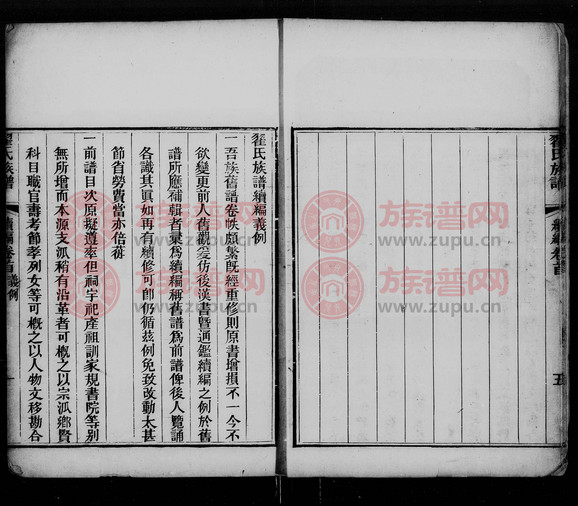 翟氏族譜
續編卷首
五
翟氏族譜續編義例
一吾族舊譜卷帙頗繁既經重修則原書增損不一今不
欲變更前人舊觀爰仿後漢書暨通鑑續編之例於舊
譜所應補輯者彙為續編稱舊譜為前譜俾後人覽誦
各識其眞如再有續修可卽仍循茲例免致改動太甚
節省勞費當亦倍蓰
一前譜目次原擬遵率但祠宇祀產祖訓家規書院等別
無所增而本源支派稍有沿革者可概之以宗派鄉賢
科目職官壽考節孝列女等可概之以人物文移勘合
翟氏族譜
續編卷首義例
一
族譜网
http://www.zupu.cn
族譜网
http://www.zupu.cn
族譜网
http://www.zupu.cn
族譜网
http://www.zupu.cn